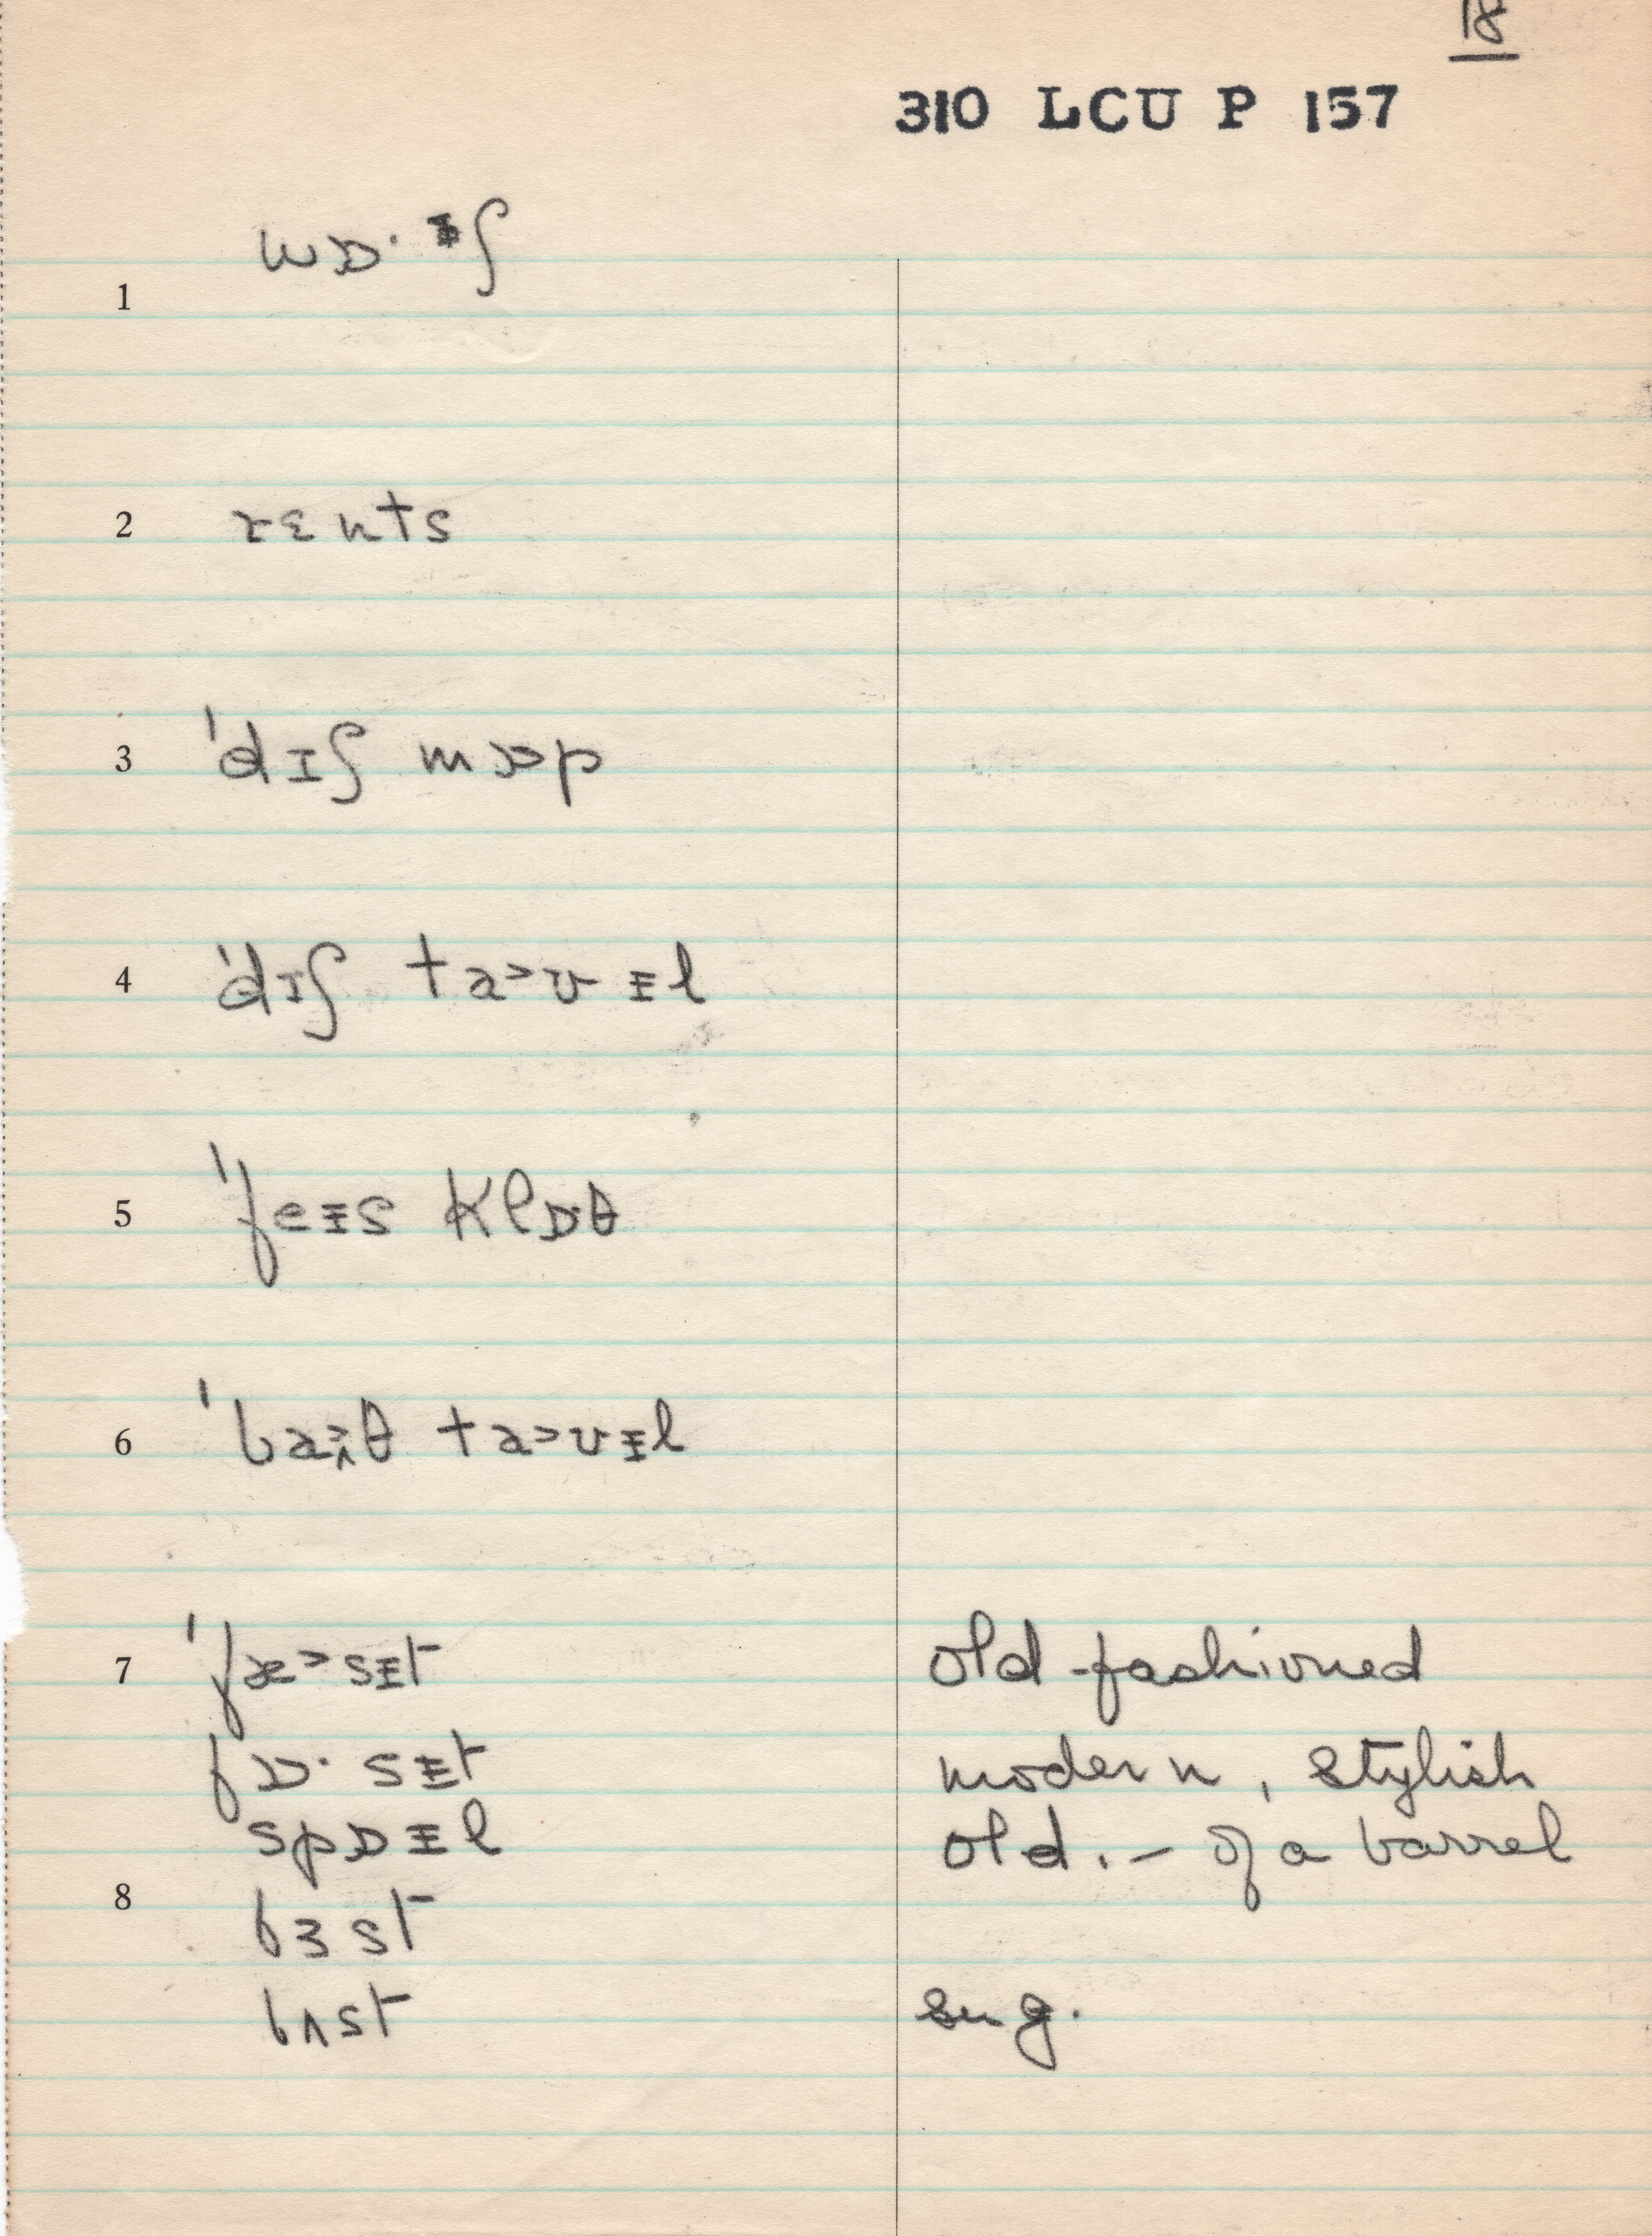 18
310 LCU P 157
1 wɒ· ᵻʃ
2 rɛnts
3 'dɪʃ mɒp
4 'dɪʃ ta>ʊᵻl
5 'feᵻs klɒ·θ
6 'ba>ʌθ ta>ʊᵻl
7 'fæ>sᵻt old-fashioned
fɒ· sᵻt modern, stylish
spɒᵻl old. – of a barrel
8
bɜst
bʌst sug.